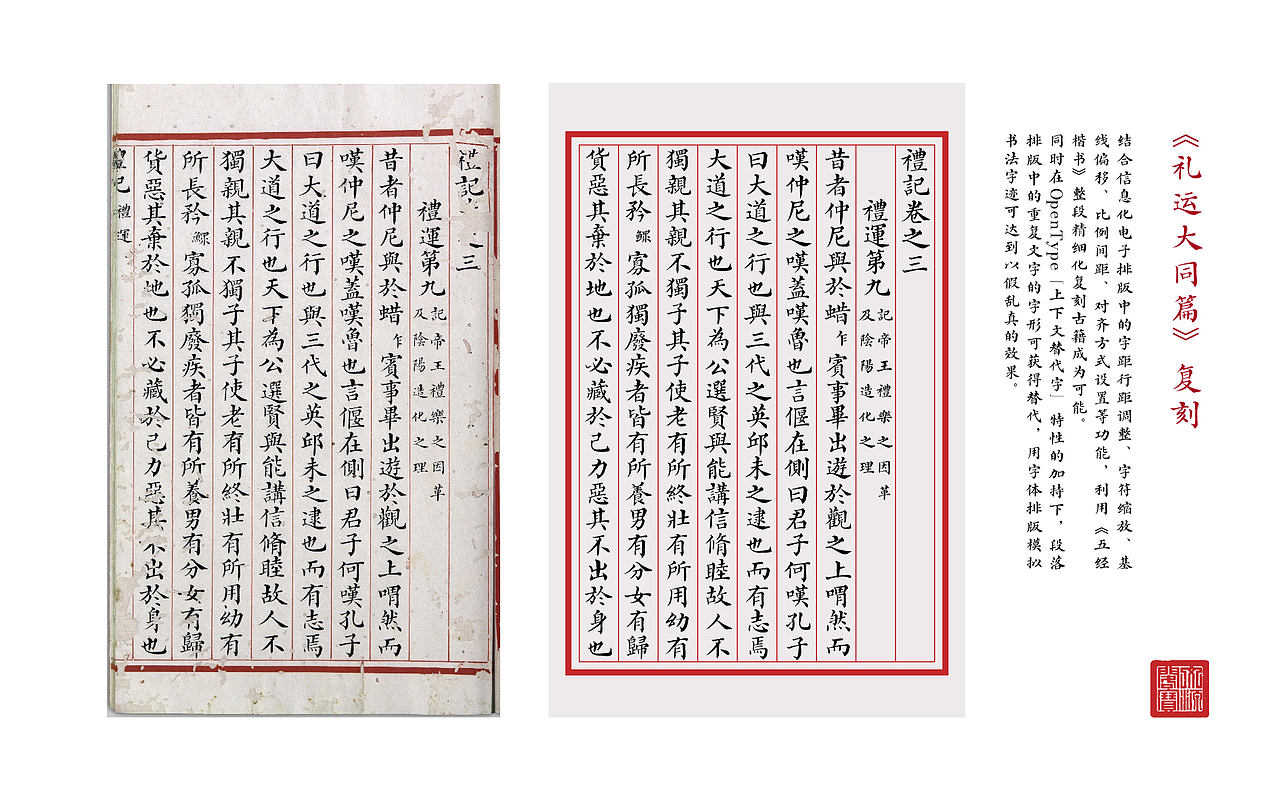 《礼运大同篇》复刻
结合信息化电子排版中的字距行距调整、字符缩放、基
线偏移、比例间距、对齐方式设置等功能，利用《五经
楷书》整段精细化复刻古籍成为可能。
同时在OpenType「上下文替代字」特性的加持下，段落
排版中的重复文字的字形可获得替代，用字体排版模拟
书法字迹可达到以假乱真的效果。
禮記卷之三
禮運第九
記帝王禮樂之因革
及陰陽造化之理
昔者仲尼與於蜡乍賓事畢出遊於觀之上喟然而
嘆仲尼之嘆蓋嘆魯也言偃在側曰君子何嘆孔子
曰大道之行也與三代之英邱未之逮也而有志焉
大道之行也天下為公選賢與能講信脩睦故人不
獨親其親不獨子其子使老有所終壯有所用幼有
所長矜鰥寡孤獨廢疾者皆有所養男有分女有歸
貨惡其棄於地也不必藏於己力惡其不出於身也
禮記三
禮運第九
記帝王禮樂之因革
及陰陽造化之理
昔者仲尼與於蜡乍賓事畢出遊於觀之上喟然而
嘆仲尼之嘆蓋嘆魯也言偃在側曰君子何嘆孔子
曰大道之行也與三代之英邱未之逮也而有志焉
大道之行也天下為公選賢與能講信脩睦故人不
獨親其親不獨子其子使老有所終壯有所用幼有
所長矜鰥寡孤獨廢疾者皆有所養男有分女有歸
貨惡其棄於地也不必藏於己力惡其不出於身也
禮記禮運